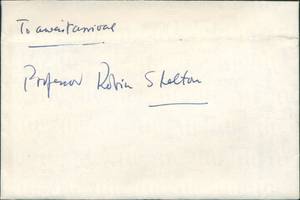 To await arrival
Professor Robin Skelton